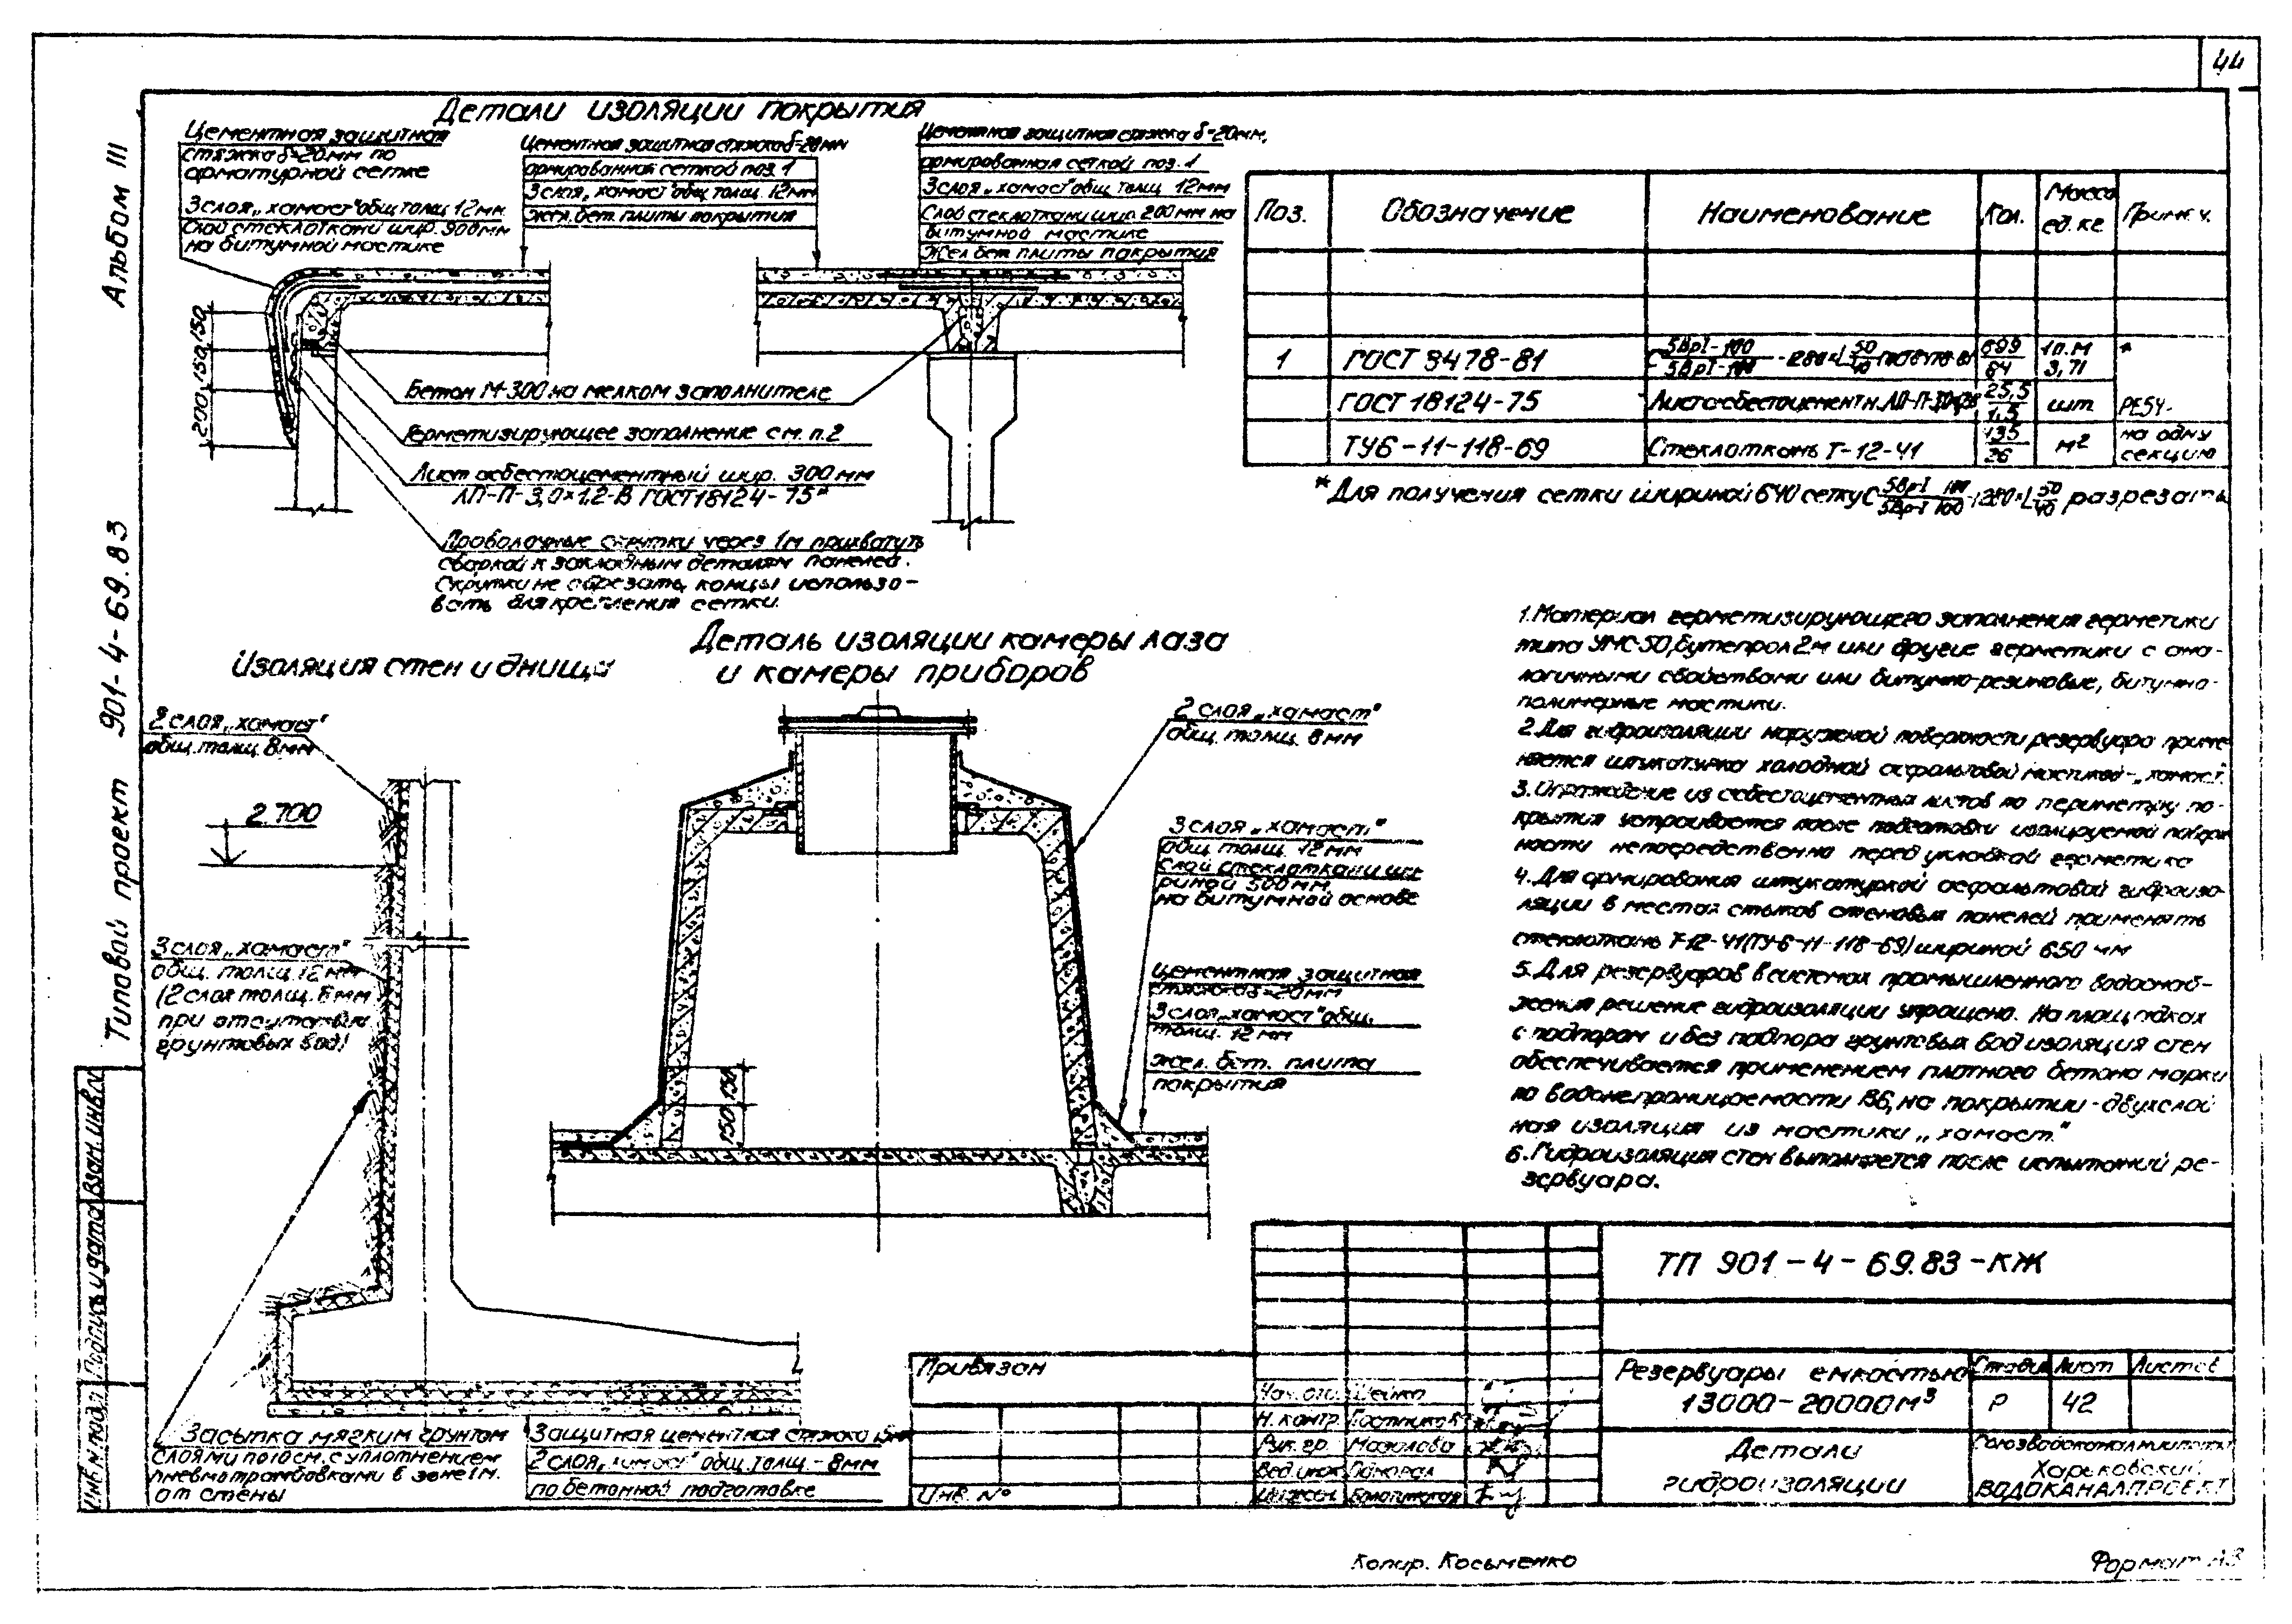 44
Альбом III
Типовой проект 901-4-69.83
Детали изоляции покрытия
Цементная защитная
стяжка δ=20мм по
арматурной сетке
3 слоя „хамаст" общ толщ 12мм
Слой стеклоткани шир. 900мм
на битумной мастике
Цементная защитная стяжка δ=20мм
армированная сеткой поз. 1
3 слоя „хамаст" общ толщ. 12мм
Жел. бет. плиты покрытия
Цементная защитная стяжка δ=20мм,
армированная сеткой поз. 1
3 слоя „хамаст" общ толщ 12мм
Слой стеклоткани шир. 200мм на
битумной мастике
Жел бет плиты покрытия
200, 150, 150
Бетон М-300 на мелком заполнителе
Герметизирующее заполнение см. п. 2
Лист асбестоцементный шир. 300мм
ЛП-П-3,0×1,2-В ГОСТ 18124-75*
Проволочные скрутки через 1м прихватить
сваркой к закладным деталям панелей.
Скрутки не обрезать, концы использо-
вать для крепления сетки.
Поз. Обозначение Наименование Кол. Масса ед. кг Примеч.
1 ГОСТ 8478-81 699/64 1п.м 3,71 *
ГОСТ 18124-75 Листы асбестоцементн. 25,5/1,5 шт
ТУ6-11-118-69 Стеклоткань Т-12-41 135/26 м²
на одну
секцию
*Для получения сетки шириной 640 сетку С 5ВрI 100/5ВрI 100 1280×L 50/40 разрезать
Изоляция стен и днища
2 слоя „хамаст"
общ. толщ. 8мм
2.700
3 слоя „хамаст"
общ. толщ. 12мм
(2 слоя толщ. 8мм
при отсутствии
грунтовых вод)
Засыпка мягким грунтом
слоями по 20см. с уплотнением
пневмотрамбовками в зоне 1м.
от стены
Защитная цементная стяжка
2 слоя „хамаст" общ. толщ.-8мм
по бетонной подготовке
Деталь изоляции камеры лаза
и камеры приборов
2 слоя „хамаст"
общ. толщ. 8мм
3 слоя „хамаст"
общ толщ. 12мм
слой стеклоткани ши-
риной 500мм
на битумной основе
Цементная защитная
стяжка δ=20мм
3 слоя „хамаст" общ.
толщ. 12мм
Жел. бет. плита
покрытия
150 150
1. Материал герметизирующего заполнения герметики
типа УМС-50, бутепрол 2м или другие герметики с ана-
логичными свойствами или битумно-резиновые, битумно-
полимерные мастики.
2. Для гидроизоляции наружной поверхности резервуара приме-
няется штукатурка холодной асфальтовой мастикой-„хамаст".
3. Ограждение из асбестоцементных листов по периметру по-
крытия устраивается после подготовки изолируемой поверх
ности непосредственно перед укладкой герметика
4. Для армирования штукатуркой асфальтовой гидроизо-
ляции в местах стыков стеновых панелей применять
стеклоткань Т-12-41(ТУ-6-11-118-69) шириной 650 мм
5. Для резервуаров в системах промышленного водоснаб-
жения решение гидроизоляции упрощено. На площадках
с подпором и без подпора грунтовых вод изоляция стен
обеспечивается применением плотного бетона марки
по водонепроницаемости В6, на покрытии-двухслой
ная изоляция из мастики „хамаст."
6. Гидроизоляция стен выполняется после испытаний ре-
зервуара.
ТП 901-4-69.83-КЖ
Резервуары емкостью
13000-20000м³
Стадия Лист Листов
Р 42
Детали
гидроизоляции
Союзводоканалниипроект
Харьковский
ВОДОКАНАЛПРОЕКТ
Привязан
Инв. №
Нач. отд.
Н. контр.
Рук. гр.
Вед. инж.
Взам. инв. №
Подпись и дата
Инв. № подл.
Копир. Косьменко
Формат А3